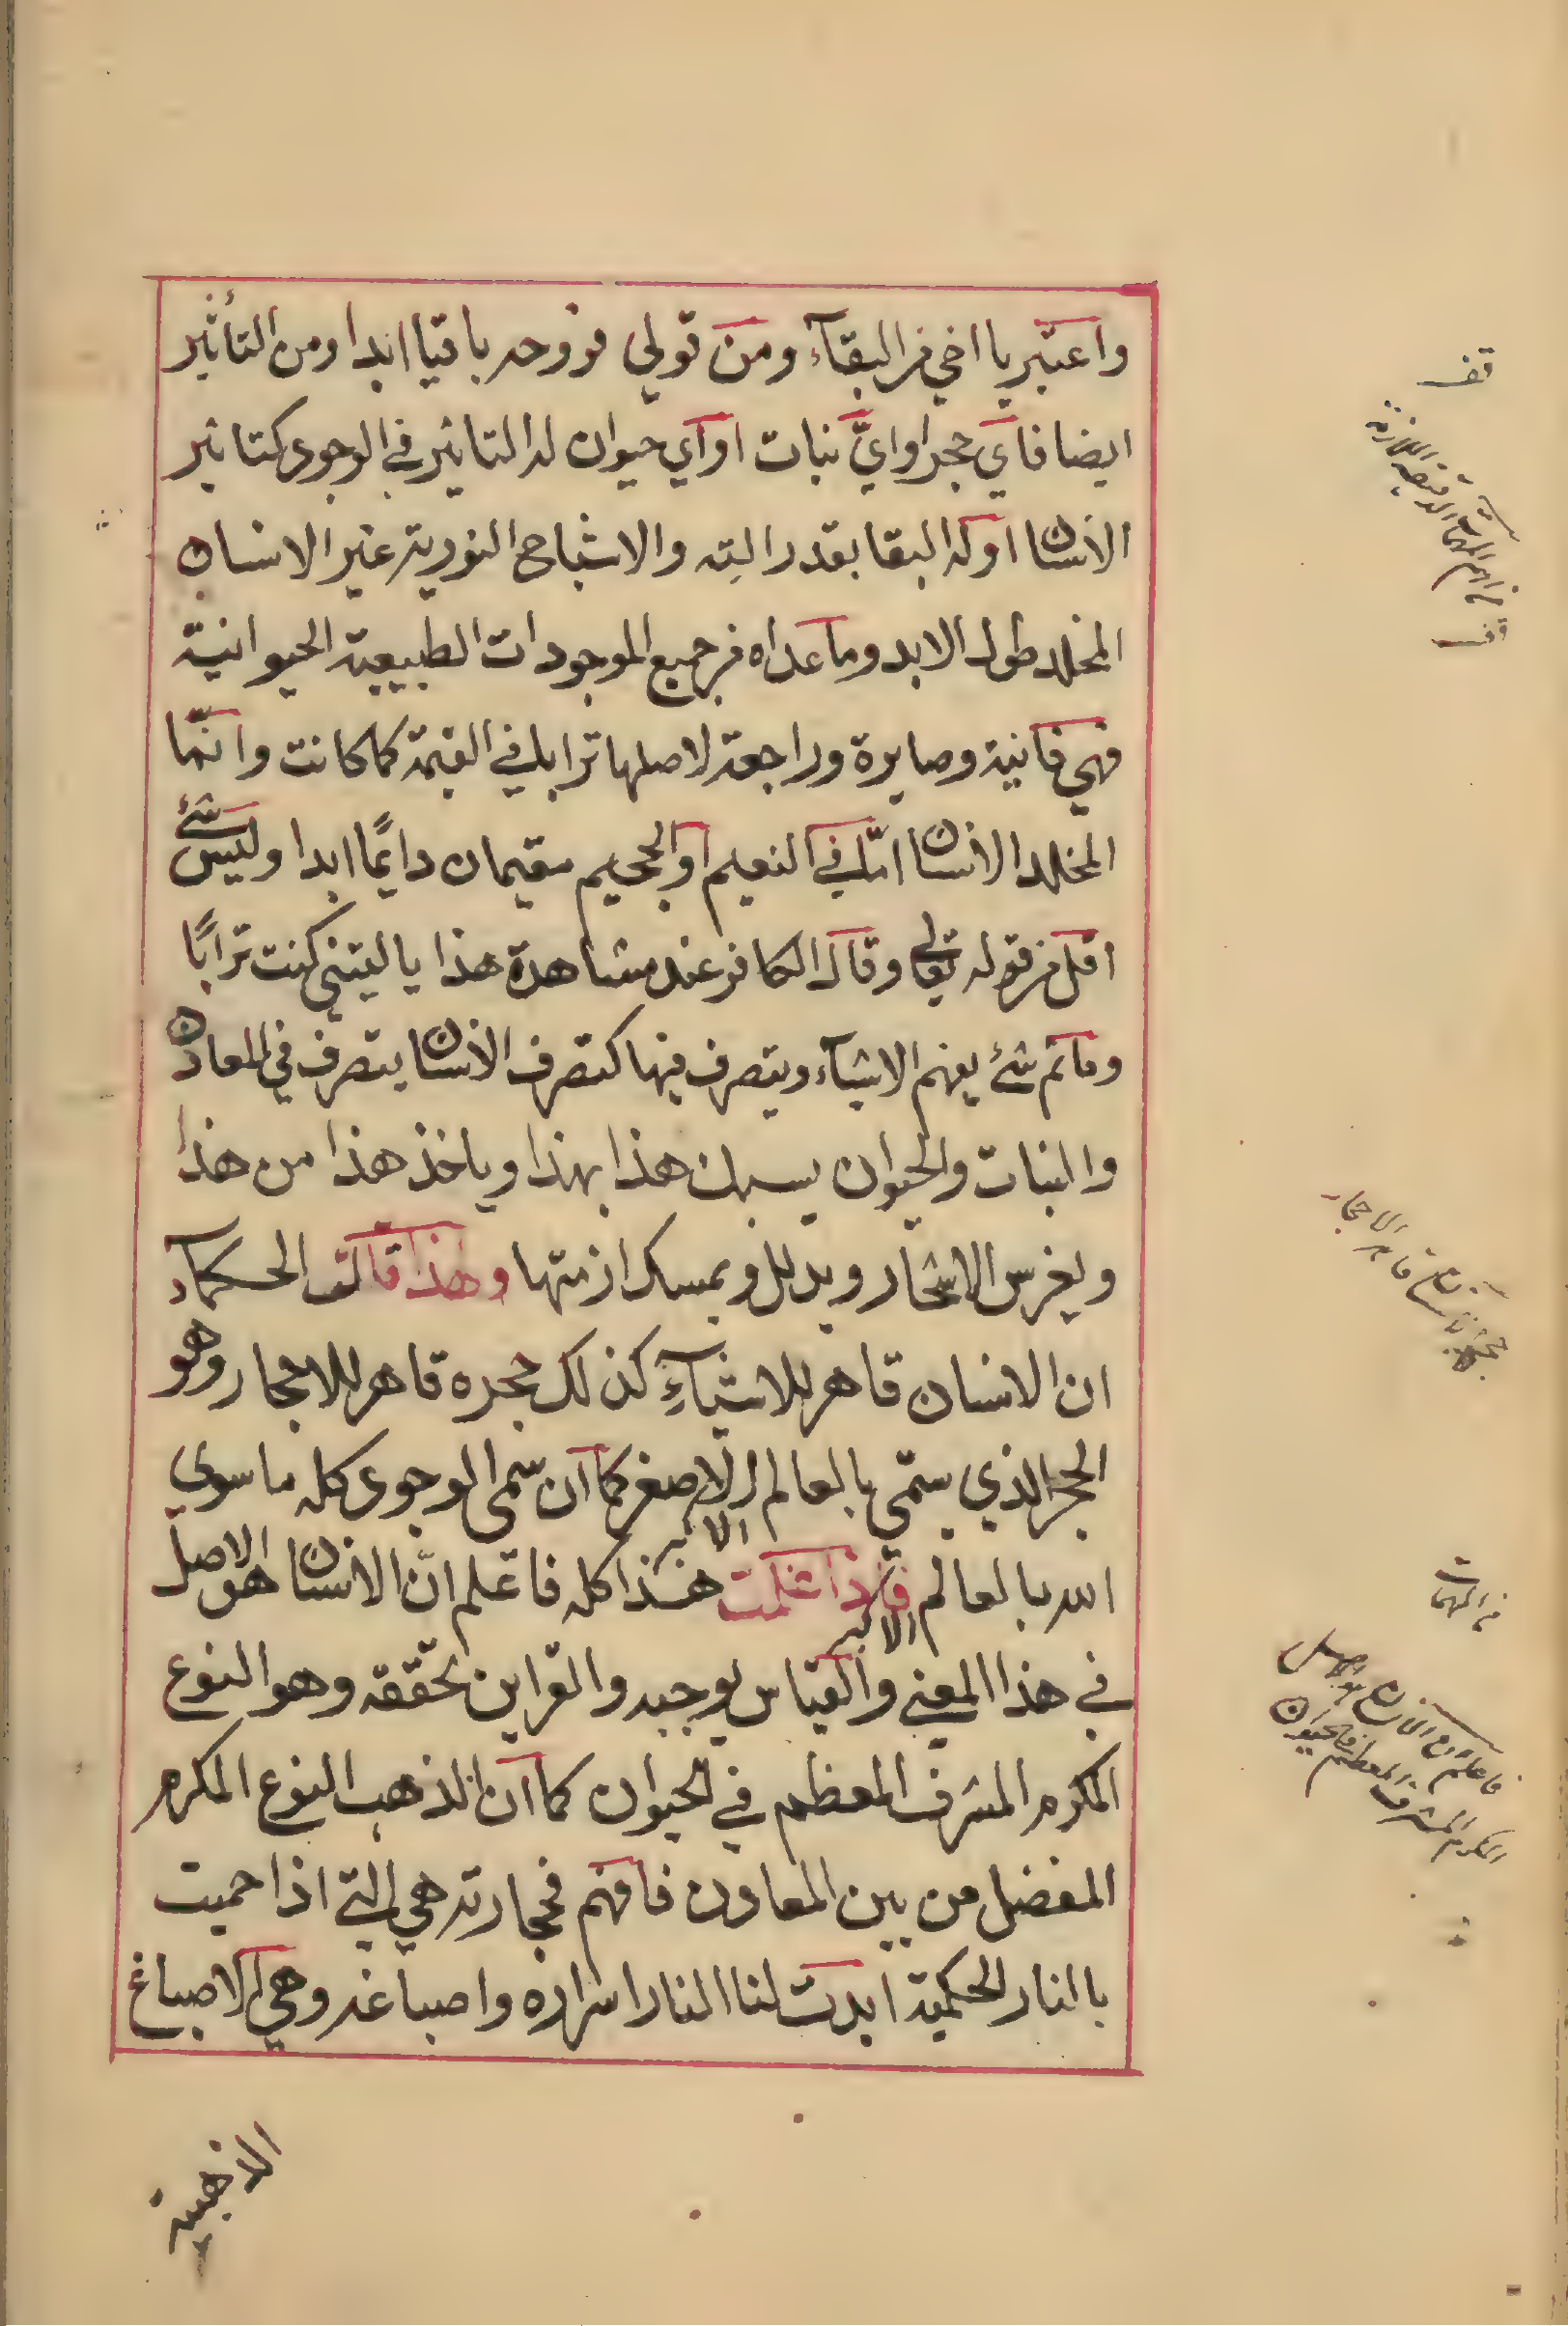 واعتبر يا اخي من البقآء ومن قولي فروحه باقيا ابدا ومن التأثير
ايضا فاي حجر او ايّ نبات او اي حيوان له التاثير في الوجود كتاثير
الانسان او له البقا بقدر الته والاشباح النورية غير الانسان
المخلد طول الابد وما عداه من جميع الموجودات الطبيعية الحيوانية
فهي فانية وصايرة وراجعة لاصلها ترابا في القيمة كما كانت وانّما
المخلد الانسان امّا في النعيم او الجحيم مقيمان دايمًا ابدا وليس شئ
اقل من قوله تعالى وقال الكافر عند مشاهدة هذا يا ليتني كنت ترابًا
وما ثم شئ يفهم الاشيآء ويتصرف فيها كتصرف الانسان يتصرف في المعادن
والنبات والحيوان يسبك هذا بهذا وياخذ هذا من هذا
ويغرس الاشجار ويدلل ويمسك ازمتها وهذا قالت الحكمآء
ان الانسان قاهر للاشيآءِ كذلك حجره قاهر للاحجار وهو
الحجر الذي يسمّي بالعالم الاصغر كما ان سمى الوجود كله ما سوي
الله بالعالم الاكبر فاذا علمت هذا كله فاعلم انّ الانسان هو الاصل
في هذا المعني والقياس يوجبه والقراين تحققه وهو النوع
المكرم المشرف المعظم في الحيوان كما ان الذهب النوع المكرم
المفضل من بين المعادن فافهم فحجارته هي التي اذا حميت
بالنار الحكمية ابدت لنا النار اسراره واصباغه وهي الاصباغ
الذهبية
قف
قف
قاهر الاحجار
من المهمات
فاعلم ان الانسان هو الاصل
المكرم المشرف المعظم في الحيوان